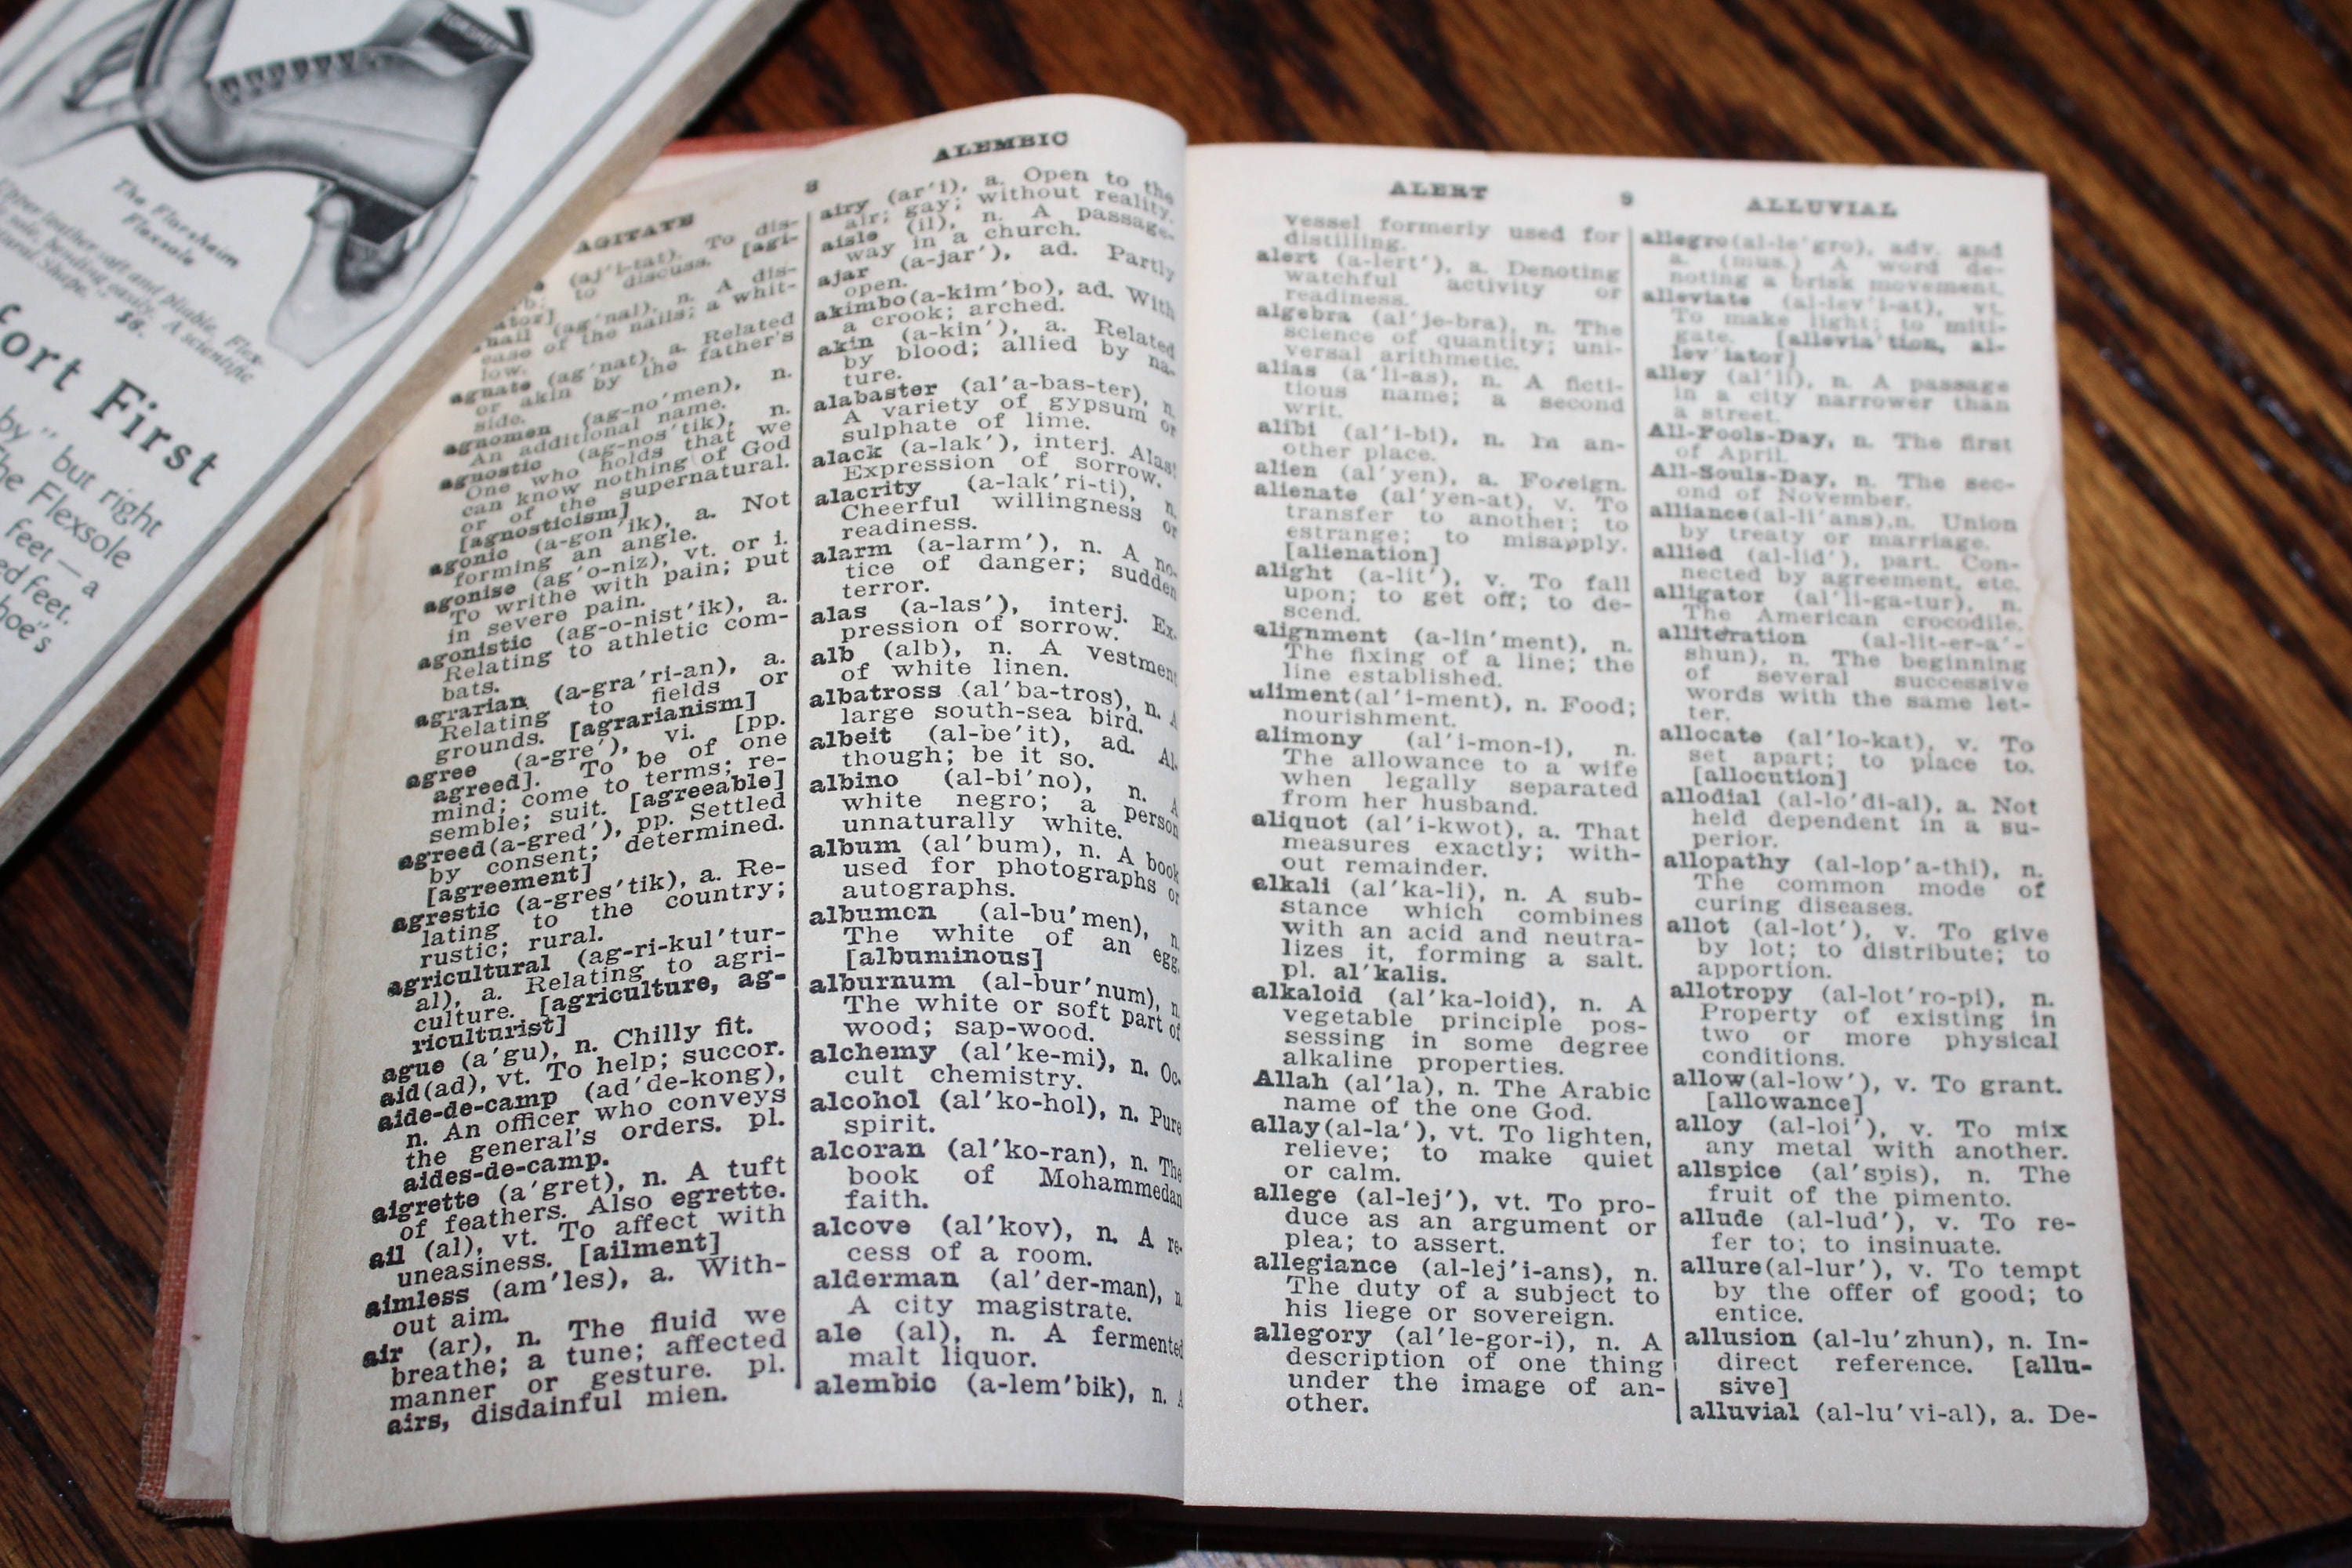 The Florsheim
Flexsole
Upper leather soft and pliable, Flex-
sole, bending easily. A scientific
Shape."
$8.
fort First
by" but right
The Flexsole
feet—a
ed feet.
hoe's
AGITATE
8
ALEMBIC
(aj'i-tat). To dis-
to discuss. [agi-
ator]
(ag'nal), n. A dis-
ease of the nails; a whit-
low.
agnate (ag'nat), a. Related
or akin by the father's
side.
agnomen (ag-no'men), n.
An additional name.
agnostic (ag-nos'tik), n.
One who holds that we
can know nothing of God
or of the supernatural.
[agnosticism]
agonic (a-gon'ik), a. Not
forming an angle.
agonise (ag'o-niz), vt. or i.
To writhe with pain; put
in severe pain.
agonistic (ag-o-nist'ik), a.
Relating to athletic com-
bats.
agrarian (a-gra'ri-an), a.
Relating to fields or
grounds. [agrarianism]
agree (a-gre'), vi. [pp.
agreed]. To be of one
mind; come to terms; re-
semble; suit. [agreeable]
agreed(a-gred'), pp. Settled
by consent; determined.
[agreement]
agrestic (a-gres'tik), a. Re-
lating to the country;
rustic; rural.
agricultural (ag-ri-kul'tur-
al), a. Relating to agri-
culture. [agriculture, ag-
riculturist]
ague (a'gu), n. Chilly fit.
aid(ad), vt. To help; succor.
aide-de-camp (ad'de-kong),
n. An officer who conveys
the general's orders. pl.
aides-de-camp.
aigrette (a'gret), n. A tuft
of feathers. Also egrette.
ail (al), vt. To affect with
uneasiness. [ailment]
aimless (am'les), a. With-
out aim.
air (ar), n. The fluid we
breathe; a tune; affected
manner or gesture. pl.
airs, disdainful mien.
airy (ar'i), a. Open to the
air; gay; without reality.
aisle (il), n. A passage-
way in a church.
ajar (a-jar'), ad. Partly
open.
akimbo(a-kim'bo), ad. With
a crook; arched.
akin (a-kin'), a. Related
by blood; allied by na-
ture.
alabaster (al'a-bas-ter), n.
A variety of gypsum or
sulphate of lime.
alack (a-lak'), interj. Alas!
Expression of sorrow.
alacrity (a-lak'ri-ti), n.
Cheerful willingness or
readiness.
alarm (a-larm'), n. A no-
tice of danger; sudden
terror.
alas (a-las'), interj. Ex-
pression of sorrow.
alb (alb), n. A vestment
of white linen.
albatross (al'ba-tros), n. A
large south-sea bird.
albeit (al-be'it), ad. Al-
though; be it so.
albino (al-bi'no), n. A
white negro; a person
unnaturally white.
album (al'bum), n. A book
used for photographs or
autographs.
albumen (al-bu'men), n.
The white of an egg.
[albuminous]
alburnum (al-bur'num), n.
The white or soft part of
wood; sap-wood.
alchemy (al'ke-mi), n. Oc-
cult chemistry.
alcohol (al'ko-hol), n. Pure
spirit.
alcoran (al'ko-ran), n. The
book of Mohammedan
faith.
alcove (al'kov), n. A re-
cess of a room.
alderman (al'der-man), n.
A city magistrate.
ale (al), n. A fermented
malt liquor.
alembic (a-lem'bik), n. A
ALERT
9
ALLUVIAL
vessel formerly used for
distilling.
alert (a-lert'), a. Denoting
watchful activity or
readiness.
algebra (al'je-bra), n. The
science of quantity; uni-
versal arithmetic.
alias (a'li-as), n. A ficti-
tious name; a second
writ.
alibi (al'i-bi), n. In an-
other place.
alien (al'yen), a. Foreign.
alienate (al'yen-at), v. To
transfer to another; to
estrange; to misapply.
[alienation]
alight (a-lit'), v. To fall
upon; to get off; to de-
scend.
alignment (a-lin'ment), n.
The fixing of a line; the
line established.
aliment(al'i-ment), n. Food;
nourishment.
alimony (al'i-mon-i), n.
The allowance to a wife
when legally separated
from her husband.
aliquot (al'i-kwot), a. That
measures exactly; with-
out remainder.
alkali (al'ka-li), n. A sub-
stance which combines
with an acid and neutra-
lizes it, forming a salt.
pl. al'kalis.
alkaloid (al'ka-loid), n. A
vegetable principle pos-
sessing in some degree
alkaline properties.
Allah (al'la), n. The Arabic
name of the one God.
allay(al-la'), vt. To lighten,
relieve; to make quiet
or calm.
allege (al-lej'), vt. To pro-
duce as an argument or
plea; to assert.
allegiance (al-lej'i-ans), n.
The duty of a subject to
his liege or sovereign.
allegory (al'le-gor-i), n. A
description of one thing
under the image of an-
other.
allegro(al-le'gro), adv. and
a. (mus.) A word de-
noting a brisk movement.
alleviate (al-lev'i-at), vt.
To make light; to miti-
gate. [allevia'tion, al-
lev'iator]
alley (al'li), n. A passage
in a city narrower than
a street.
All-Fools-Day, n. The first
of April.
All-Souls-Day, n. The sec-
ond of November.
alliance(al-li'ans),n. Union
by treaty or marriage.
allied (al-lid'), part. Con-
nected by agreement, etc.
alligator (al'li-ga-tur), n.
The American crocodile.
alliteration (al-lit-er-a'-
shun), n. The beginning
of several successive
words with the same let-
ter.
allocate (al'lo-kat), v. To
set apart; to place to.
[allocution]
allodial (al-lo'di-al), a. Not
held dependent in a su-
perior.
allopathy (al-lop'a-thi), n.
The common mode of
curing diseases.
allot (al-lot'), v. To give
by lot; to distribute; to
apportion.
allotropy (al-lot'ro-pi), n.
Property of existing in
two or more physical
conditions.
allow(al-low'), v. To grant.
[allowance]
alloy (al-loi'), v. To mix
any metal with another.
allspice (al'spis), n. The
fruit of the pimento.
allude (al-lud'), v. To re-
fer to; to insinuate.
allure(al-lur'), v. To tempt
by the offer of good; to
entice.
allusion (al-lu'zhun), n. In-
direct reference. [allu-
sive]
alluvial (al-lu'vi-al), a. De-